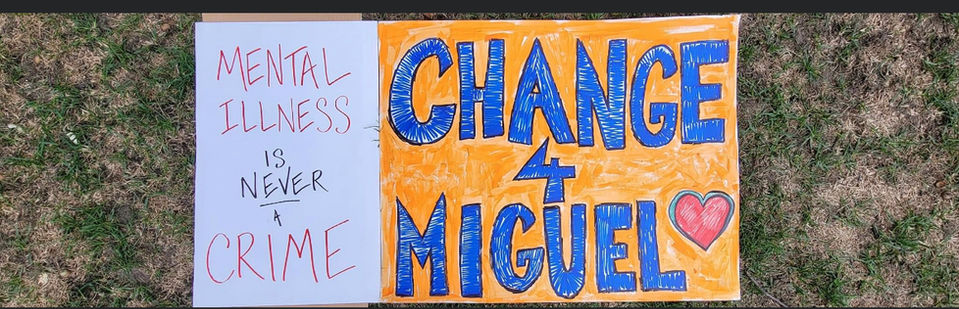 MENTAL
ILLNESS
IS
NEVER
A
CRIME
CHANGE
4
MIGUEL